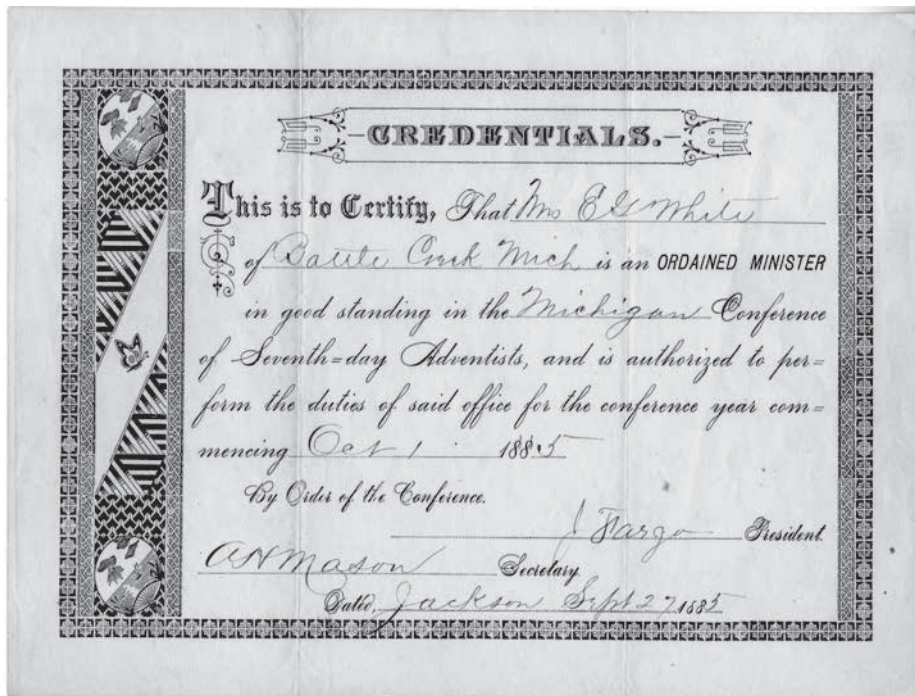 CREDENTIALS.
This is to Certify, That Mrs E G White
of Battle Creek Mich is an ORDAINED MINISTER
in good standing in the Michigan Conference
of Seventh=day Adventists, and is authorized to per=
form the duties of said office for the conference year com=
mencing Oct 1 1885
By Order of the Conference.
J Fargo President.
A H Mason Secretary.
Dated, Jackson Sept 27 1885